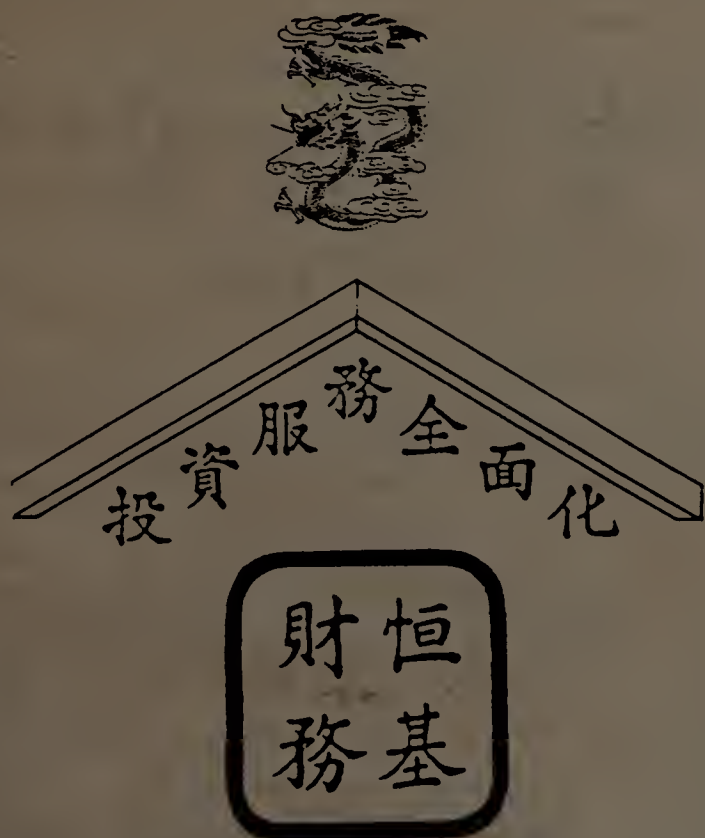 投資服務全面化
恒基
財務